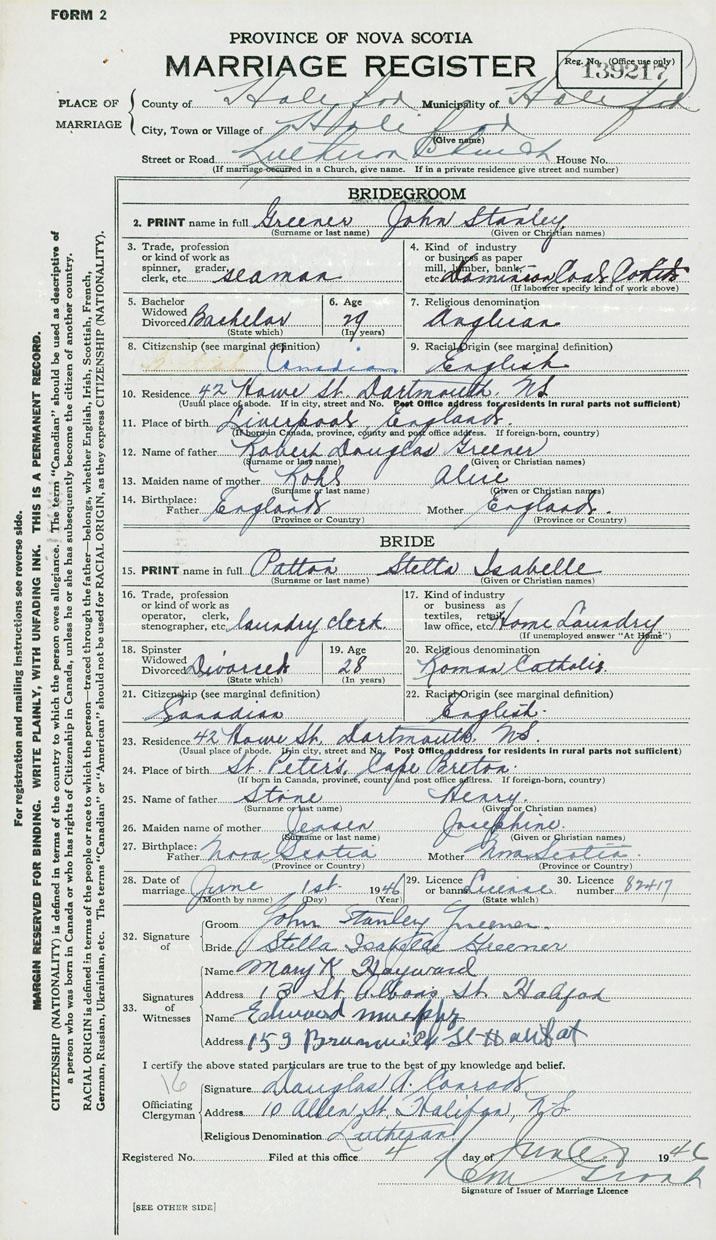 FORM 2
PROVINCE OF NOVA SCOTIA
MARRIAGE REGISTER
Reg. No. (Office use only)
139217
PLACE OF MARRIAGE
County of Halifax Municipality of Halifax
City, Town or Village of Halifax
(Give name)
Street or Road Lutheran Church House No.
(If marriage occurred in a Church, give name. If in a private residence give street and number)
BRIDEGROOM
2. PRINT name in full Greener John Stanley
(Surname or last name) (Given or Christian names)
3. Trade, profession or kind of work as spinner, grader, clerk, etc. seaman
4. Kind of industry or business as paper mill, lumber, bank, etc. Dominion Coal
(If laborer specify kind of work above)
5. Bachelor Widowed Divorced Bachelor
(State which)
6. Age 29
(In years)
7. Religious denomination Anglican
8. Citizenship (see marginal definition) Canadian
9. Racial Origin (see marginal definition) English
10. Residence 42 Howe St. Dartmouth NS
(Usual place of abode. If in city, street and No. Post Office address for residents in rural parts not sufficient)
11. Place of birth Liverpool, England.
(If born in Canada, province, county and post office address. If foreign-born, country)
12. Name of father Robert Douglas Greener
(Surname or last name) (Given or Christian names)
13. Maiden name of mother Kohl Alice
(Surname or last name) (Given or Christian names)
14. Birthplace: Father England Mother England.
(Province or Country) (Province or Country)
BRIDE
15. PRINT name in full Patton Stella Isabelle
(Surname or last name) (Given or Christian names)
16. Trade, profession or kind of work as operator, clerk, stenographer, etc. laundry clerk
17. Kind of industry or business as textiles, retail, law office, etc. Home Laundry
(If unemployed answer "At Home")
18. Spinster Widowed Divorced Divorced
(State which)
19. Age 28
(In years)
20. Religious denomination Roman Catholic.
21. Citizenship (see marginal definition) Canadian
22. Racial Origin (see marginal definition) English.
23. Residence 42 Howe St. Dartmouth NS.
(Usual place of abode. If in city, street and No. Post Office address for residents in rural parts not sufficient)
24. Place of birth St. Peter's, Cape Breton.
(If born in Canada, province, county and post office address. If foreign-born, country)
25. Name of father Stone Henry.
(Surname or last name) (Given or Christian names)
26. Maiden name of mother Jensen Josephine.
(Surname or last name) (Given or Christian names)
27. Birthplace: Father Nova Scotia Mother Nova Scotia.
(Province or Country) (Province or Country)
28. Date of marriage June 1st. 1946
(Month by name) (Day) (Year)
29. Licence or banns License
(State which)
30. Licence number 82417
32. Signature of
Groom John Stanley Greener.
Bride Stella Isabelle Greener
33. Signatures of Witnesses
Name Mary K Hayward
Address 13 St Albans St Halifax
Name Edward Murphy
Address 153 Brunswick St Halifax
I certify the above stated particulars are true to the best of my knowledge and belief.
16
Officiating Clergyman
Signature Douglas A. Conrad
Address 10 Allen St. Halifax, N.S.
Religious Denomination Lutheran.
Registered No. Filed at this office 4 day of June 1946
Signature of Issuer of Marriage Licence
[SEE OTHER SIDE]
For registration and mailing instructions see reverse side.
MARGIN RESERVED FOR BINDING. WRITE PLAINLY, WITH UNFADING INK. THIS IS A PERMANENT RECORD.
CITIZENSHIP (NATIONALITY) is defined in terms of the country to which the person owes allegiance. The term "Canadian" should be used as descriptive of
a person who was born in Canada or who has rights of Citizenship in Canada, unless he or she has subsequently become the citizen of another country.
RACIAL ORIGIN is defined in terms of the people or race to which the person—traced through the father—belongs, whether English, Irish, Scottish, French,
German, Russian, Ukrainian, etc. The terms "Canadian" or "American" should not be used for RACIAL ORIGIN, as they express CITIZENSHIP (NATIONALITY).